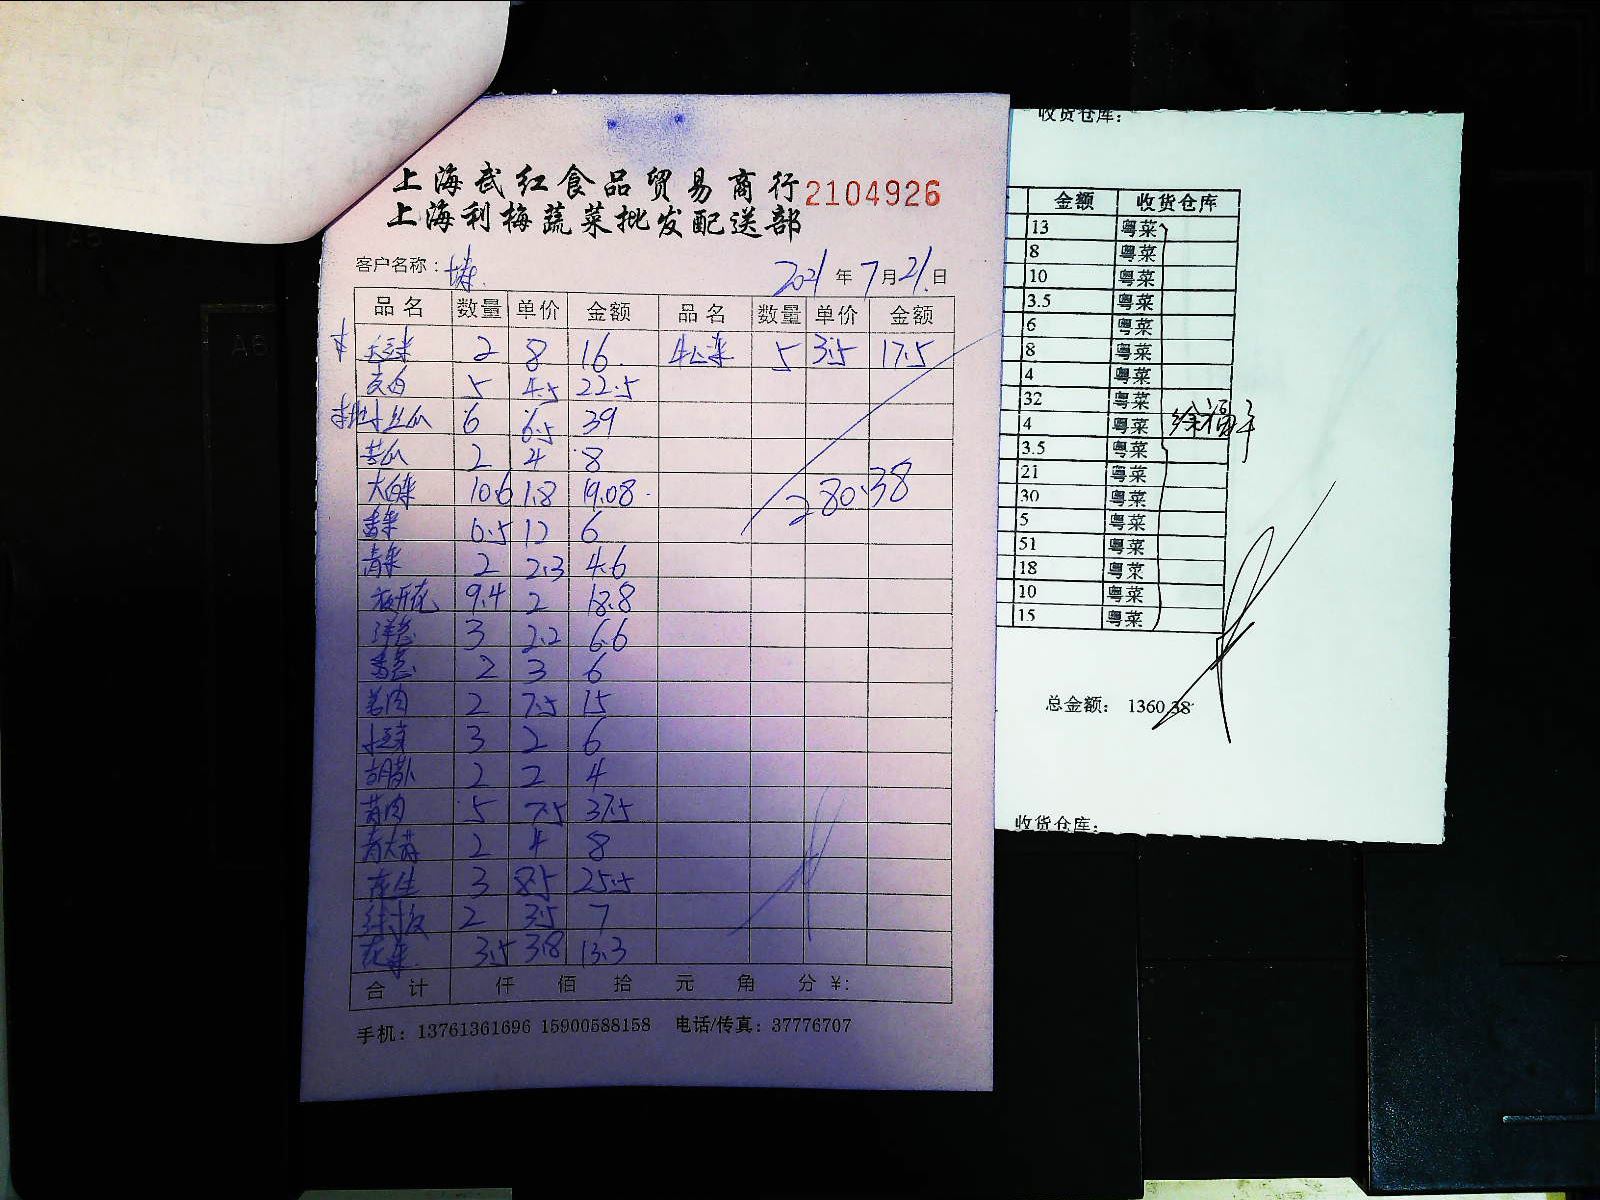 上海武红食品贸易商行 2104926
上海利梅蔬菜批发配送部
客户名称: 2021 年 7 月 21 日
品名 数量 单价 金额 品名 数量 单价 金额
2 8 16 5 3.5 17.5
茭白 5 4.5 22.5
丝瓜 6 6.5 39
苦瓜 2 4 8
大白菜 10.6 1.8 19.08
0.5 12 6
280.38
青菜 2 2.3 4.6
9.4 2 18.8
洋葱 3 2.2 6.6
香葱 2 3 6
姜肉 2 7.5 15
3 2 6
胡萝卜 2 2 4
5 7.5 37.5
青大蒜 2 4 8
花生 3 8.5 25.5
2 3.5 7
花菜 3.5 3.8 13.3
合计 仟 佰 拾 元 角 分 ¥:
手机: 13761361696 15900588158 电话/传真: 37776707
收货仓库:
金额 收货仓库
13 粤菜
8 粤菜
10 粤菜
3.5 粤菜
6 粤菜
8 粤菜
4 粤菜
32 粤菜
4 粤菜 徐福平
3.5 粤菜
21 粤菜
30 粤菜
5 粤菜
51 粤菜
18 粤菜
10 粤菜
15 粤菜
总金额: 1360.38
收货仓库:
A6